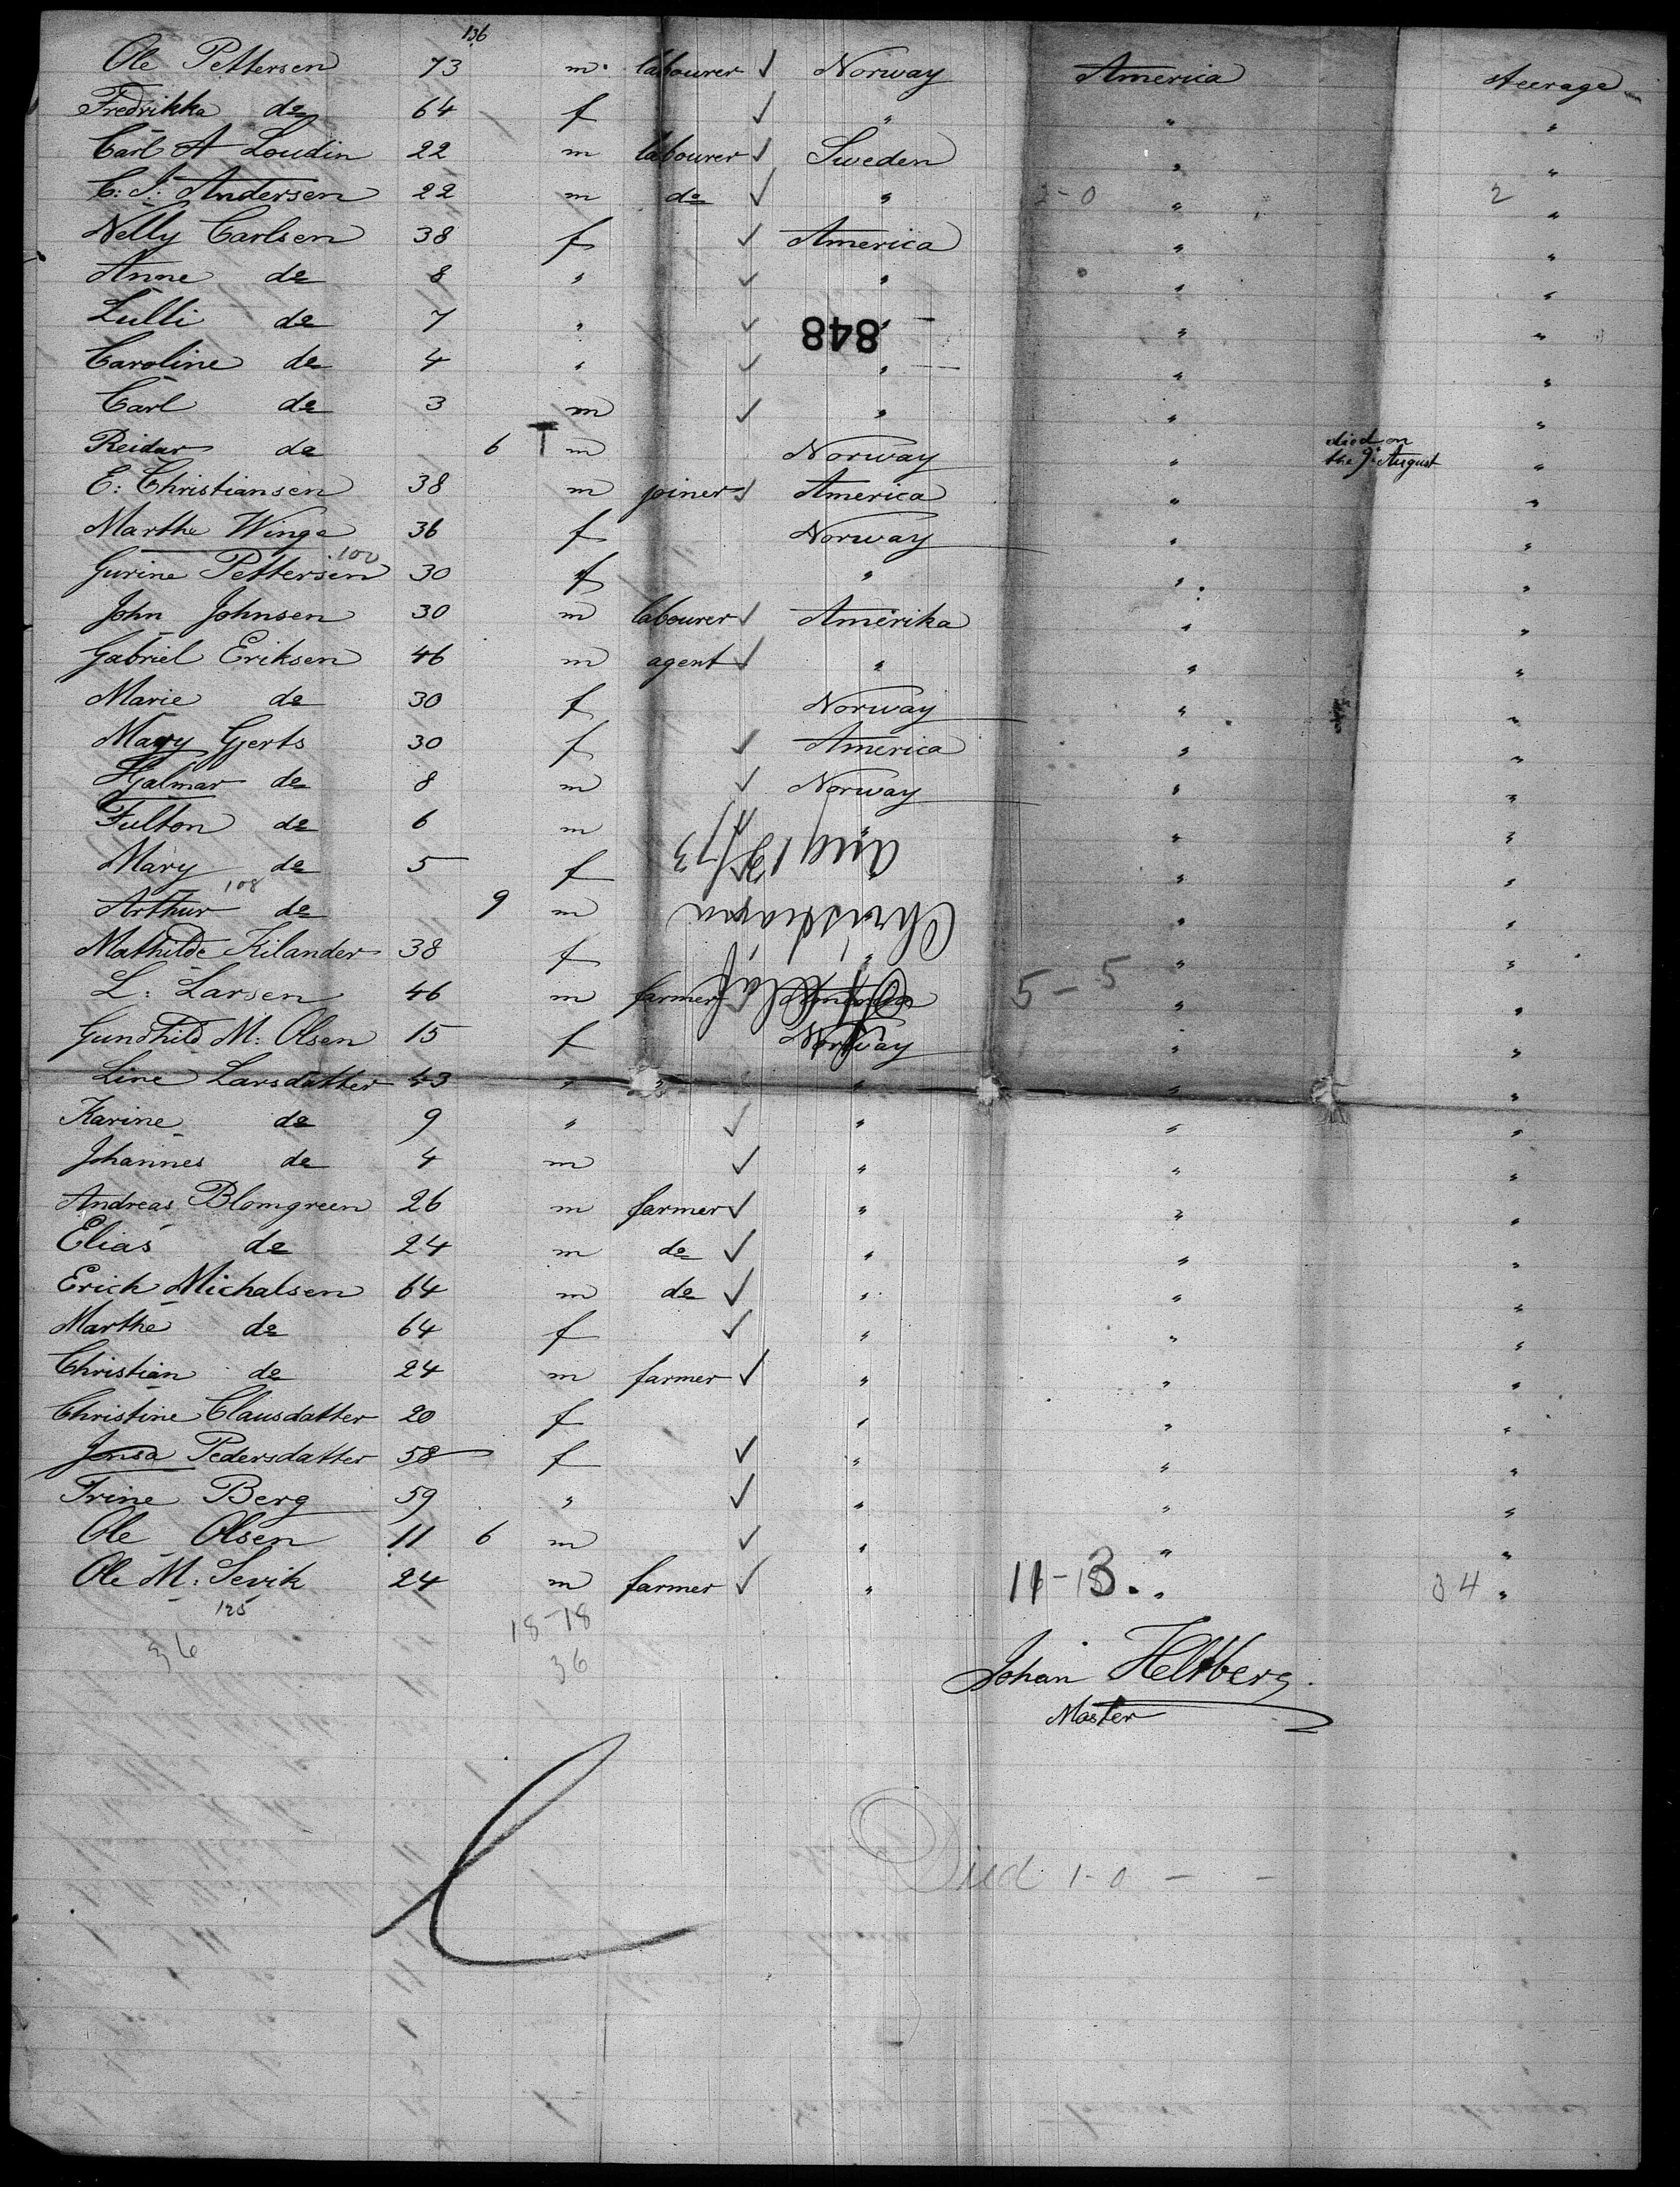 136
Ole Pettersen 73 m. labourer ✓ Norway America Steerage
Fredrikka do 64 f ✓ " " "
Carl A Loudin 22 m labourer ✓ Sweden " "
C: J: Andersen 22 m do ✓ " 2-0 " 2 "
Nelly Carlsen 38 f ✓ America " "
Anne do 8 " ✓ " " "
Lulli do 7 " ✓ " " "
848
Caroline do 4 " ✓ " " "
Carl do 3 m ✓ " " "
Reidar do 6 T m Norway " died on the 9th August "
E: Christiansen 38 m joiner ✓ America " "
Marthe Winge 36 f Norway " "
100
Gurine Pettersen 30 f " " "
John Johnsen 30 m labourer ✓ Amerika " "
Gabriel Eriksen 46 m agent ✓ " " "
Marie do 30 f Norway " "
Mary Gjerts 30 f ✓ America " "
Hjalmar do 8 m ✓ Norway " "
Fulton do 6 m " " "
Aug 12/73
Mary do 5 f " " "
108
Arthur do 9 m " "
Christiania
Mathilde Kilander 38 f " " "
L: Larsen 46 m farmer 5-5 " "
Gundhild M: Olsen 15 f Norway " "
Line Larsdatter 43 " " " " "
Karine do 9 " ✓ " " "
Johannes do 4 m ✓ " " "
Andreas Blomgreen 26 m farmer ✓ " " "
Elias do 24 m do ✓ " " "
Erick Michalsen 64 m do ✓ " " "
Marthe do 64 f ✓ " " "
Christian do 24 m farmer ✓ " " "
Christine Clausdatter 20 f " " "
Jensa Pedersdatter 58 f ✓ " " "
Trine Berg 59 " ✓ " " "
Ole Olsen 11 6 m ✓ " " "
Ole M: Sevik 24 m farmer ✓ " 11-13. " 34 "
125
18-18
36 36
Johan Heltberg.
Master
Died 1-0 - -